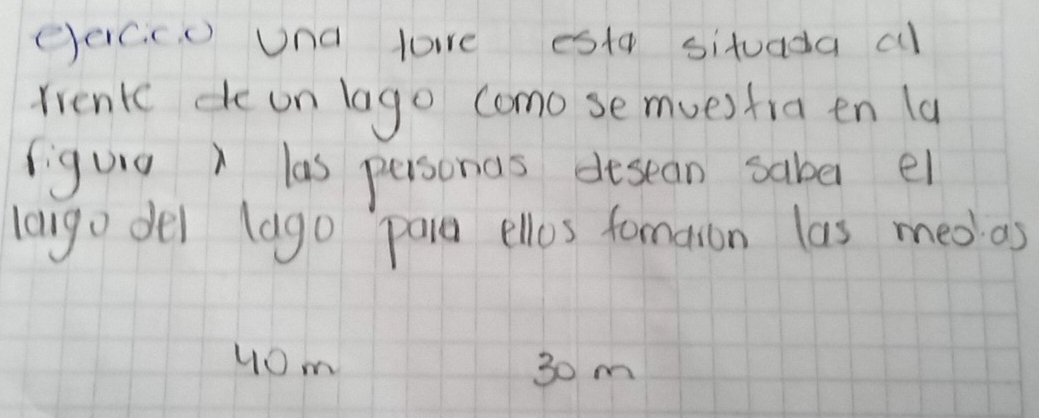 ejercicio una torre esta situada al
frente de un lago como se muestra en la
figura y las personas desean saber el
largo del lago para ellos tomaron las medias
40 m 30 m